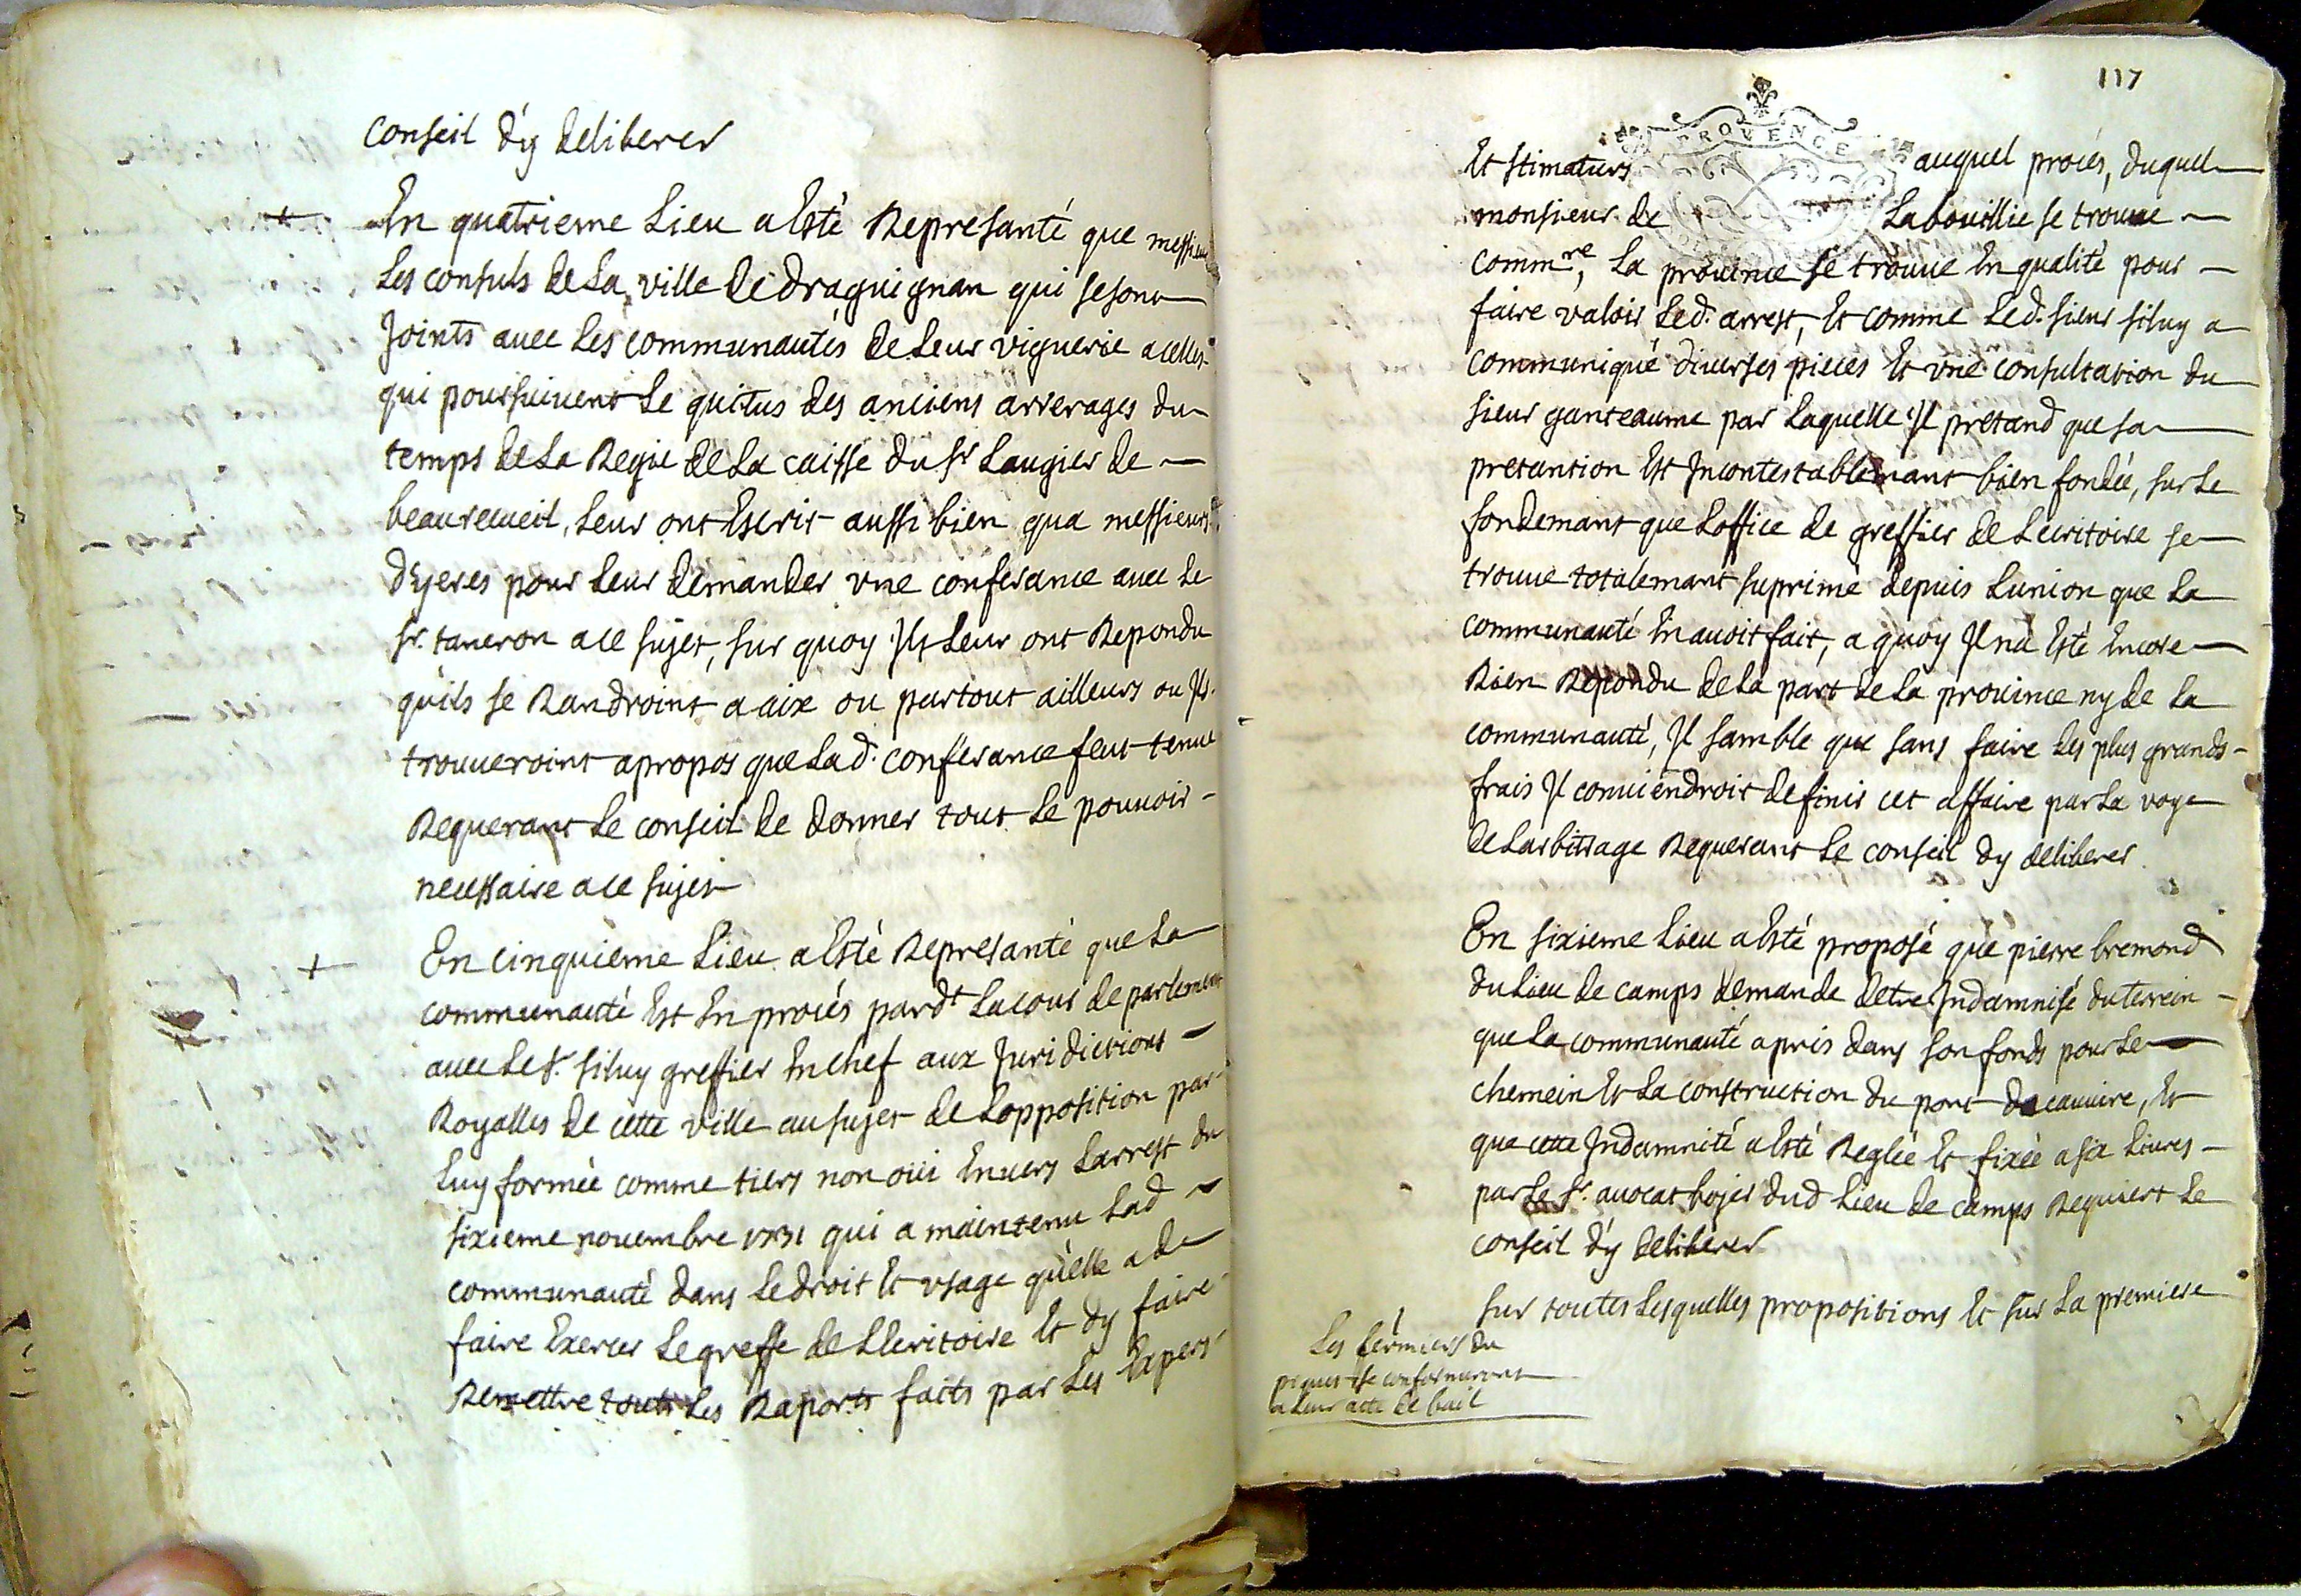 conseil d'y deliberer
+ En quatrieme lieu a Esté Represanté que messieurs
les consuls de la ville de draguignan qui se sont
Joints avec les communautés de leur viguerie a celles
qui poursuivent le quitus des anciens arrerages du
temps de la Regie de la caisse du Sr laugier de
beaurecueil, leur ont Escrit aussi bien qua messieurs
d'yeres pour leur demander vne conferance avec le
Sr. taneron a ce sujet, sur quoy Ils leur ont Repondu
qu'ils se Randroint a aix ou partout ailleurs ou Ils
trouueroint apropos que lad. conferance feut tenue
Requerant le conseil de donner tout le pouuoir
necessaire a ce sujet
+ En cinquieme lieu a Esté Represanté que la
communauté Est En procés pardt la cour de parlement
auec le Sr. siluy greffier En chef aux Juridictions
Royalles de cette ville au sujet de l'opposition par
luy formée comme tiers non oüi Enuers larrest du
sixieme nouembre 1731 qui a maintenu lad
communauté dans le droit Et vsage qu'elle a de
faire Exercer le greffe de l'Ecritoire Et dy faire
Remettre touts les Raports faits par les Expers
117
PROVENCE
Et stimateurs auquel procés, duquel
monsieur de Labouillie se trouue
commre, la prouince se trouue En qualité pour
faire valoir led. arrest, Et comme led. sieur siluy a
communiqué diuerses pieces Et vne consultation du
sieur ganteaume par laquelle Il pretand que sa
pretantion Est Incontestablemant bien fondée, sur le
fondemant que loffice de greffier de lecritoire se
trouue totalemant suprimé depuis lunion que la
communauté En auoit fait, a quoy Il na Esté Encore
Rien Repondu de la part de la prouince ny de la
communauté, Il samble que sans faire les plus grands
frais Il conuiendroit de finir cet affaire par la voye
de larbitrage Requerant le conseil dy deliberer
En sixieme lieu a Esté proposé que pierre bremond
du lieu de camps demande detre Indamnisé du terrein
que la communauté a pris dans son fonds pour le
chemein Et la construction du pont de cauuire, Et
que cette Indamnité a Esté Reglée Et fixée a six liures
par le Sr. auocat bojer dud lieu de camps Requiert le
conseil d'y deliberer
sur toutes lesquelles propositions Et sur la premiere
Les fermiers du
piquet se conformeront
a leur acte de bail